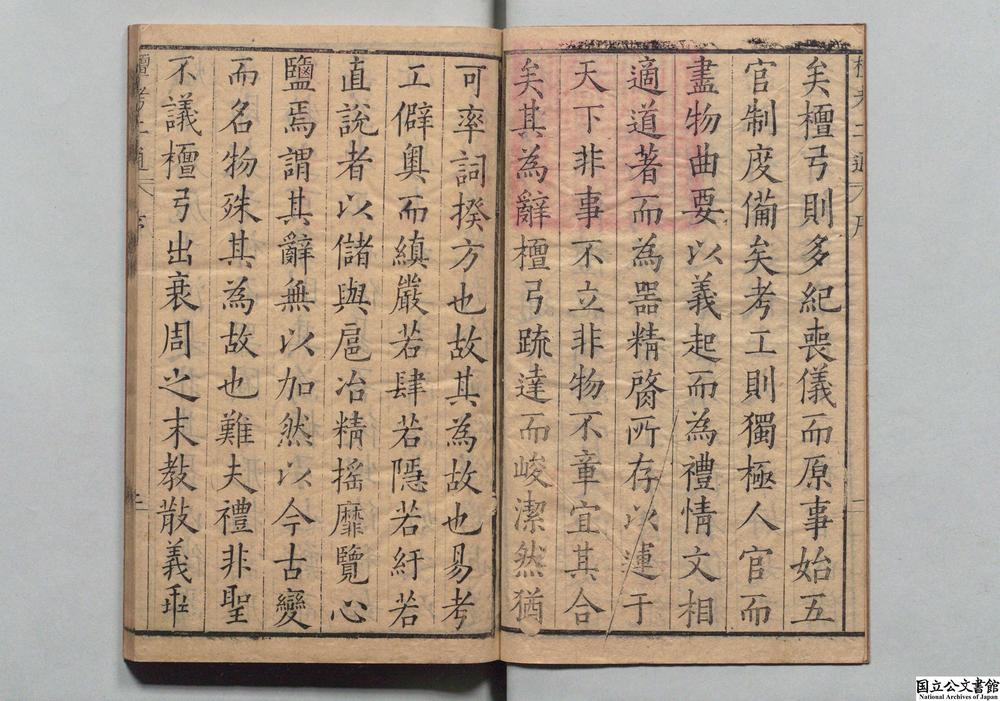 矣檀弓則多紀喪儀而原事始五
官制度備矣考工則獨極人官而
盡物曲要以義起而為禮情文相
適道著而為器精䏿所存以運于
天下非事不立非物不章宜其合
矣其為辭檀弓疏達而峻潔然猶
可率詞揆方也故其為故也易考
工僻奧而縝嚴若肆若隱若紆若
直說者以儲與扈冶精搖靡覽心
鹽焉謂其辭無以加然以今古變
而名物殊其為故也難夫禮非聖
不議檀弓出衰周之末教散義乖
檀考二通 序
二
檀考二通 序
三
国立公文書館
National Archives of Japan